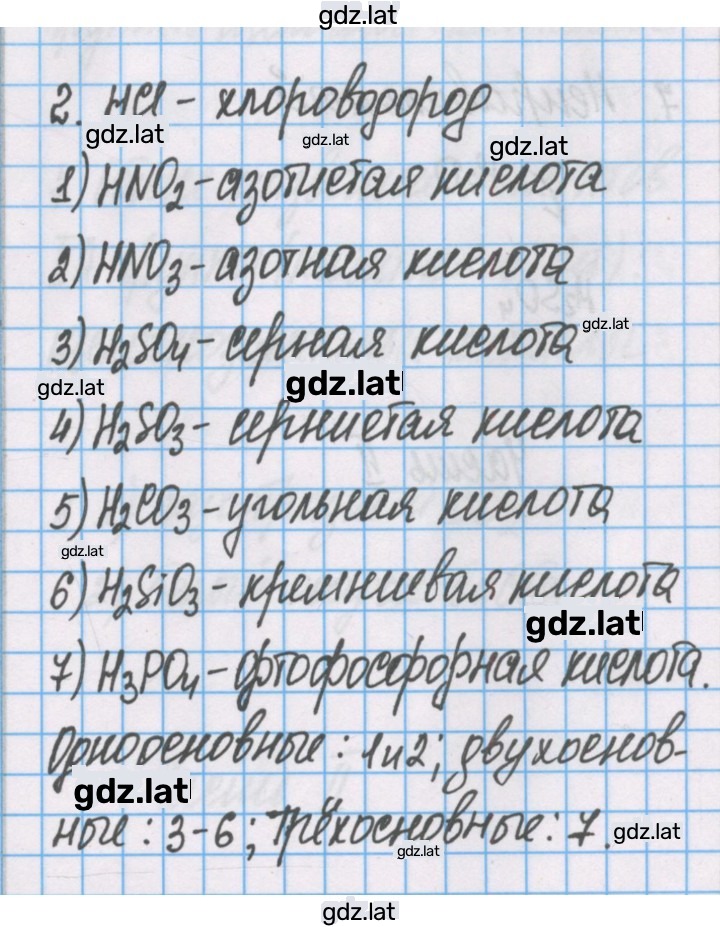 gdz.lat
2. HCl - хлороводород
gdz.lat gdz.lat gdz.lat
1) HNO2 - азотистая кислота
2) HNO3 - азотная кислота
gdz.lat
3) H2SO4 - серная кислота
gdz.lat gdz.lat
4) H2SO3 - сернистая кислота
5) H2CO3 - угольная кислота
gdz.lat
6) H2SiO3 - кремниевая кислота
gdz.lat
7) H3PO4 - ортофосфорная кислота.
Одноосновные: 1 и 2; двухоснов-
gdz.lat
ные: 3-6; трёхосновные: 7.
gdz.lat
gdz.lat
gdz.lat